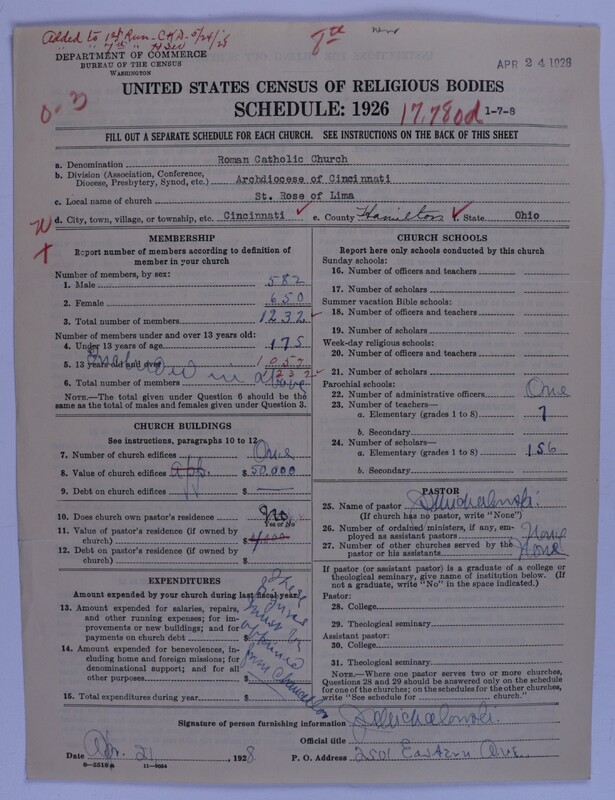 Added to 1st Run - C.H.D. - 5/24/28
" " 7th " HSW
8th
DEPARTMENT OF COMMERCE
BUREAU OF THE CENSUS
WASHINGTON
APR 24 1928
UNITED STATES CENSUS OF RELIGIOUS BODIES
SCHEDULE: 1926
17,780d 1-7-8
FILL OUT A SEPARATE SCHEDULE FOR EACH CHURCH. SEE INSTRUCTIONS ON THE BACK OF THIS SHEET
a. Denomination Roman Catholic Church
b. Division (Association, Conference, Diocese, Presbytery, Synod, etc.) Archdiocese of Cincinnati
c. Local name of church St. Rose of Lima
d. City, town, village, or township, etc. Cincinnati ✓ e. County Hamilton ✓ f. State Ohio
MEMBERSHIP
Report number of members according to definition of
member in your church
Number of members, by sex:
1. Male 582
2. Female 650
3. Total number of members 1232 ✓
Number of members under and over 13 years old:
4. Under 13 years of age 175
5. 13 years old and over 1057
6. Total number of members 1232 ✓
NOTE.—The total given under Question 6 should be the
same as the total of males and females given under Question 3.
CHURCH BUILDINGS
See instructions, paragraphs 10 to 12
7. Number of church edifices One
8. Value of church edifices $ 50.000
9. Debt on church edifices $
10. Does church own pastor's residence No
Yes or No
11. Value of pastor's residence (if owned by
church) $
12. Debt on pastor's residence (if owned by
church) $
EXPENDITURES
Amount expended by your church during last fiscal year:
13. Amount expended for salaries, repairs,
and other running expenses; for im-
provements or new buildings; and for
payments on church debt $
14. Amount expended for benevolences, in-
cluding home and foreign missions; for
denominational support; and for all
other purposes $
15. Total expenditures during year $
These
figures
must be
obtained
from Chancellor
CHURCH SCHOOLS
Report here only schools conducted by this church
Sunday schools:
16. Number of officers and teachers
17. Number of scholars
Summer vacation Bible schools:
18. Number of officers and teachers
19. Number of scholars
Week-day religious schools:
20. Number of officers and teachers
21. Number of scholars
Parochial schools:
22. Number of administrative officers One
23. Number of teachers—
a. Elementary (grades 1 to 8) 7
b. Secondary
24. Number of scholars—
a. Elementary (grades 1 to 8) 156
b. Secondary
PASTOR
25. Name of pastor
(If church has no pastor, write "None")
26. Number of ordained ministers, if any, em-
ployed as assistant pastors None
27. Number of other churches served by the
pastor or his assistants None
If pastor (or assistant pastor) is a graduate of a college or
theological seminary, give name of institution below. (If
not a graduate, write "No" in the space indicated.)
Pastor:
28. College
29. Theological seminary
Assistant pastor:
30. College
31. Theological seminary
NOTE.—Where one pastor serves two or more churches,
Questions 28 and 29 should be answered only on the schedule
for one of the churches; on the schedules for the other churches,
write "See schedule for church."
Signature of person furnishing information
Official title
Date Apr. 21, 1928 P. O. Address 2501 Eastern Ave.
8-5518a 11-9054